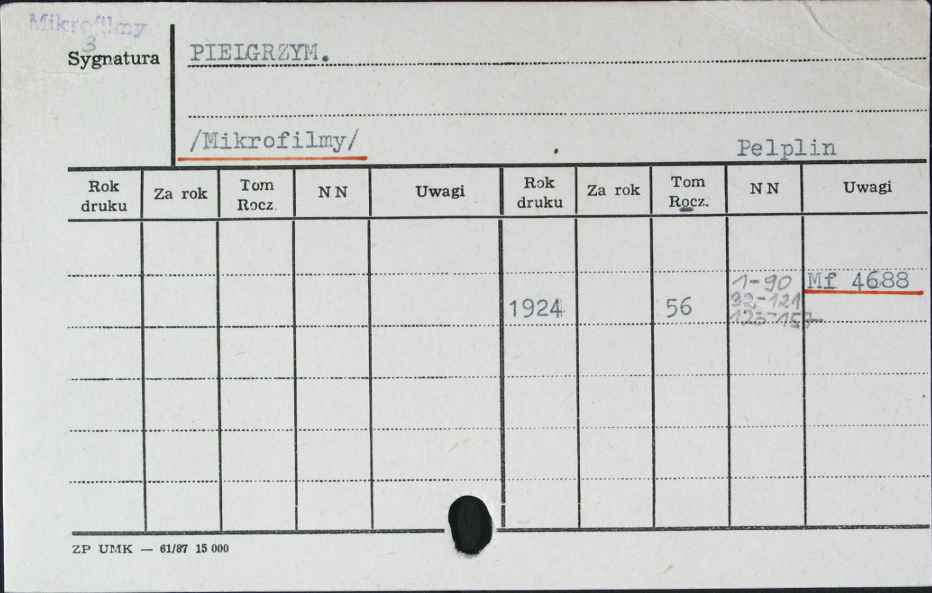 Mikrofilmy
3
Sygnatura
PIELGRZYM.
/Mikrofilmy/
Pelplin
Rok druku Za rok Tom Rocz. N N Uwagi Rok druku Za rok Tom Rocz. N N Uwagi
1-90 Mf 4688
1924 56 92-121
123-157
ZP UMK — 61/87 15 000